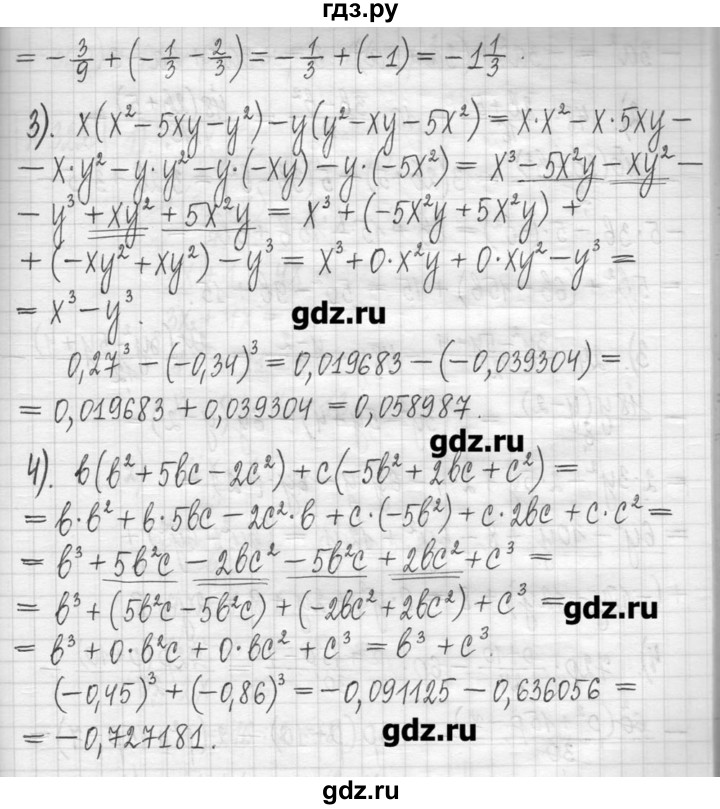 гдз.ру
= -3/9 + (-1/3 - 2/3) = -1/3 + (-1) = -1 1/3.
3). x(x² - 5xy - y²) - y(y² - xy - 5x²) = x·x² - x·5xy -
- x·y² - y·y² - y·(-xy) - y·(-5x²) = x³ - 5x²y - xy² -
- y³ + xy² + 5x²y = x³ + (-5x²y + 5x²y) +
+ (-xy² + xy²) - y³ = x³ + 0·x²y + 0·xy² - y³ =
= x³ - y³.
gdz.ru
0,27³ - (-0,34)³ = 0,019683 - (-0,039304) =
= 0,019683 + 0,039304 = 0,058987.
gdz.ru
4). в(в² + 5вс - 2с²) + с(-5в² + 2вс + с²) =
= в·в² + в·5вс - 2с²·в + с·(-5в²) + с·2вс + с·с² =
= в³ + 5в²с - 2вс² - 5в²с + 2вс² + с³ =
= в³ + (5в²с - 5в²с) + (-2вс² + 2вс²) + с³ =
gdz.ru
= в³ + 0·в²с + 0·вс² + с³ = в³ + с³
(-0,45)³ + (-0,86)³ = -0,091125 - 0,636056 =
= -0,727181.
gdz.ru
гдз.ру